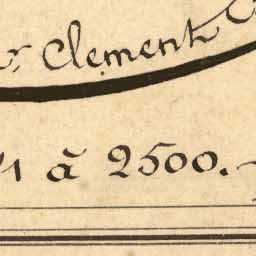 r. Clement
1 à 2500.